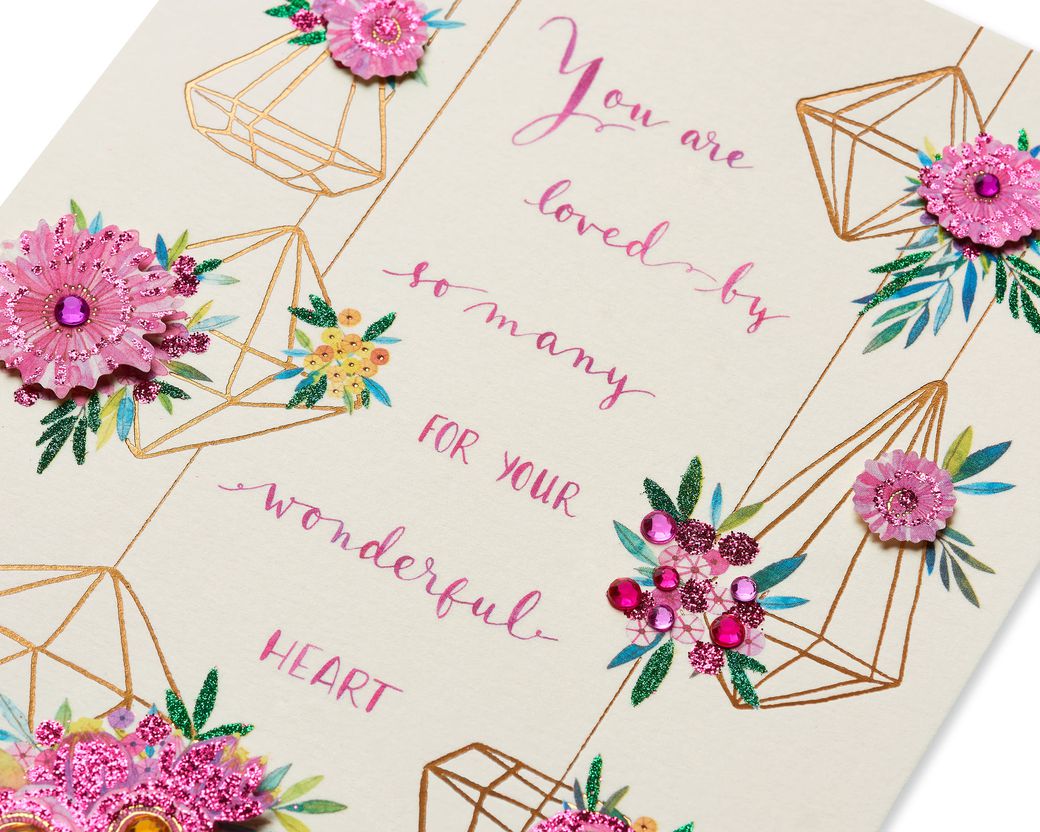 You are
loved by
so many
FOR YOUR
wonderful
HEART